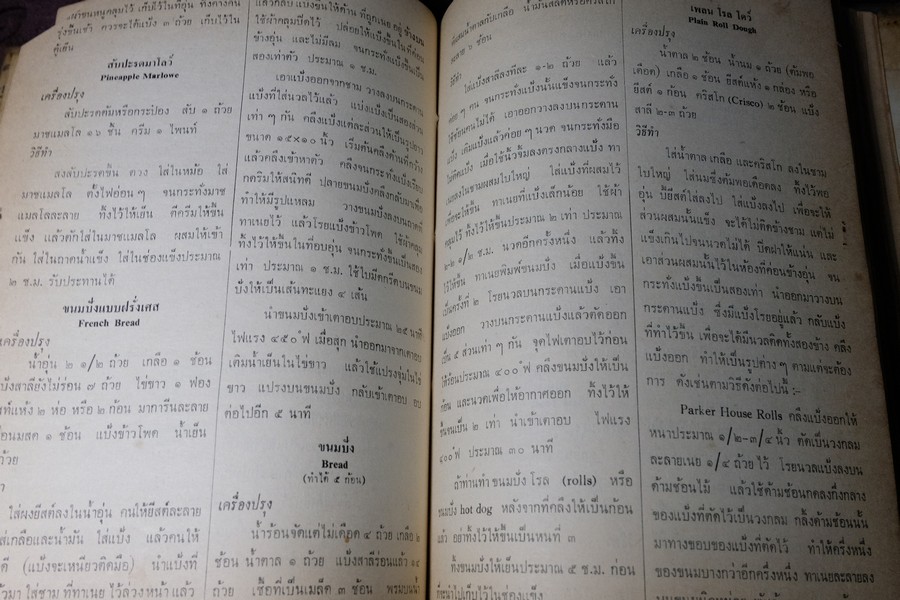 รุ่งขึ้นเช้า ควรจะใช้แป้ง ๓ ถ้วย เก็บไว้ใน
ตู้เย็น
สับปะรดมาโลว์
Pineapple Marlowe
เครื่องปรุง
สับปะรดคั้นหรือกระป๋อง สับ ๑ ถ้วย
มาชแมลโล ๑๖ ชิ้น ครีม ๑ ไพนท์
วิธีทำ
แมลโลละลาย ทิ้งไว้ให้เย็น ตีครีมให้ขึ้น
แข็ง แล้วตักใส่ในมาชแมลโล ผสมให้เข้า
กัน ใส่ถาดน้ำแข็ง ใส่ในช่องแข็งประมาณ
๒ ช.ม. รับประทานได้
ขนมปังแบบฝรั่งเศส
French Bread
เครื่องปรุง
น้ำอุ่น ๒ ๑/๒ ถ้วย เกลือ ๑ ช้อน
แป้งสาลียังไม่ร่อน ๗ ถ้วย ไข่ขาว ๑ ฟอง
แห้ง ๒ ห่อ หรือ ๒ ก้อน มาการีนละลาย
๑ ช้อน แป้งข้าวโพด น้ำเย็น
ใส่ผงยีสต์ลงในน้ำอุ่น คนให้ยีสต์ละลาย
ใส่เกลือและน้ำมัน ใส่แป้ง แล้วคนให้
(แป้งจะเหนียวติดมือ) นำแป้งที่
ใส่ชาม ที่ทาเนย ไว้ล่วงหน้า แล้ว
แล้วกลับแป้งขึ้นให้ด้าน ที่ถูกเนย อยู่ ข้างบน
ใช้ผ้าคลุมปิดไว้ ปล่อยให้แป้งขึ้นในที่ค่อน
ข้างอุ่น และไม่มีลม จนกระทั่งแป้งขึ้นเป็น
สองเท่าตัว ประมาณ ๑ ช.ม.
เอาแป้งออกจากชาม วางลงบนกระดาน
แป้งที่ใส่นวลไว้แล้ว แบ่งแป้งเป็นสองส่วน
เท่า ๆ กัน คลึงแป้งแต่ละส่วนให้เป็นรูปยาว
ขนาด ๑๕x๑๐ นิ้ว เริ่มต้นคลึงด้านที่กว้าง
แล้วคลึงเข้าหาตัว คลึงจนกระทั่งแป้งเรียบ
กดริมให้สนิทดี ปลายขนมปังคลึงกลับมาเพื่อ
ทำให้มีรูปแหลม วางขนมปังลงบนถาดที่
ทาเนยไว้ แล้วโรยแป้งข้าวโพด ใช้ผ้าคลุม
ทิ้งไว้ให้ขึ้นในที่อบอุ่น จนกระทั่งขึ้นเป็นสอง
เท่า ประมาณ ๑ ช.ม. ใช้ใบมีดกรีดบนขนม
ปังให้เป็นเส้นทะแยง ๔ เส้น
นำขนมปังเข้าเตาอบประมาณ ๒๕ นาที
ไฟแรง ๔๕๐°ฟ เมื่อสุก นำออกมาจากเตาอบ
เติมน้ำเย็นในไข่ขาว แล้วใช้แปรงจุ่มในไข่
ขาว แปรงบนขนมปัง กลับเข้าเตาอบ อบ
ต่อไปอีก ๕ นาที
ขนมปัง
Bread
(ทำได้ ๕ ก้อน)
เครื่องปรุง
น้ำร้อนจัดแต่ไม่เดือด ๔ ถ้วย เกลือ ๒
ช้อน น้ำตาล ๑ ถ้วย แป้งสาลีร่อนแล้ว ๑๔
ถ้วย เชื้อที่เป็นเมล็ด ๓ ช้อน
วิธีทำ
ใส่แป้งสาลีลงทีละ ๑-๒ ถ้วย แล้ว
ค่อย ๆ คน จนกระทั่งแป้งนั้นแข็งจนกระทั่ง
ใช้ช้อนคนไม่ได้ เอาออกวางลงบนกระดาน
แป้ง เติมแป้งแล้วค่อย ๆ นวด จนกระทั่งมือ
ไม่ติดแป้ง เมื่อใช้นิ้วจิ้มลงตรงกลางแป้ง ทา
เนยลงในชามผสมใบใหญ่ ใส่แป้งที่ผสมไว้
เพื่อจะให้ขึ้น ทาเนยที่แป้งเล็กน้อย ใช้ผ้า
คลุมไว้ ทิ้งไว้ให้ขึ้นประมาณ ๒ เท่า ประมาณ
๒-๒ ๑/๒ ช.ม. นวดอีกครั้งหนึ่ง แล้วทิ้ง
ไว้ให้ขึ้น ทาเนยพิมพ์ขนมปัง เมื่อแป้งขึ้น
เป็นครั้งที่ ๒ โรยนวลบนกระดานแป้ง เอา
แป้งออก วางบนกระดานแป้งแล้วตัดออก
เป็น ๕ ส่วนเท่า ๆ กัน จุดไฟเตาอบไว้ก่อน
ให้ร้อนประมาณ ๔๐๐°ฟ คลึงขนมปังให้เป็น
ก้อน และนวดเพื่อให้อากาศออก ทิ้งไว้ให้
ขึ้นจนเป็น ๒ เท่า นำเข้าเตาอบ ไฟแรง
๔๐๐°ฟ ประมาณ ๓๐ นาที
ถ้าท่านทำ ขนมปัง โรล (rolls) หรือ
ขนมปัง hot dog หลังจากที่คลึงให้เป็นก้อน
แล้ว อย่าทิ้งไว้ให้ขึ้นเป็นหนที่ ๓
ทิ้งขนมปังให้เย็นประมาณ ๕ ช.ม. ก่อน
เพลน โรล โดว์
Plain Roll Dough
เครื่องปรุง
น้ำตาล ๒ ช้อน น้ำนม ๑ ถ้วย (ต้มพอ
เดือด) เกลือ ๑ ช้อน ยีสต์แห้ง ๑ กล่อง หรือ
ยีสต์ ๑ ก้อน คริสโก (Crisco) ๒ ช้อน แป้ง
สาลี ๒-๓ ถ้วย
วิธีทำ
ใส่น้ำตาล เกลือ และคริสโก ลงในชาม
ใบใหญ่ ใส่นมซึ่งต้มพอเดือดลง ทิ้งไว้พอ
อุ่น บิยีสต์ใส่ลงไป ใส่แป้งลงไป เพื่อจะให้
ส่วนผสมนั้นแข็ง จะได้ไม่ติดข้างชาม แต่ไม่
แข็งเกินไปจนนวดไม่ได้ ปิดฝาให้แน่น และ
เอาส่วนผสมนั้นไว้ในห้องที่ค่อนข้างอุ่น จน
กระทั่งแป้งขึ้นเป็นสองเท่า นำออกมาวางบน
กระดานแป้ง ซึ่งมีแป้งโรยอยู่แล้ว กลับแป้ง
ที่ทำไว้ขึ้น เพื่อจะได้มีนวลติดทั้งสองข้าง คลึง
แป้งออก ทำให้เป็นรูปต่าง ๆ ตามแต่จะต้อง
การ ดังเช่นตามวิธีดังต่อไปนี้ :-
Parker House Rolls คลึงแป้งออกให้
หนาประมาณ ๑/๒-๓/๔ นิ้ว ตัดเป็นวงกลม
ละลายเนย ๑/๔ ถ้วย ไว้ โรยนวลแป้งลงบน
ด้ามช้อนไม้ แล้วใช้ด้ามช้อนกดลงกึ่งกลาง
ของแป้งที่ตัดไว้เป็นวงกลม กลิ้งด้ามช้อนนั้น
มาทางขอบของแป้งที่ตัดไว้ ทำให้ครึ่งหนึ่ง
ของขนมบางกว่าอีกครึ่งหนึ่ง ทาเนยละลายลง